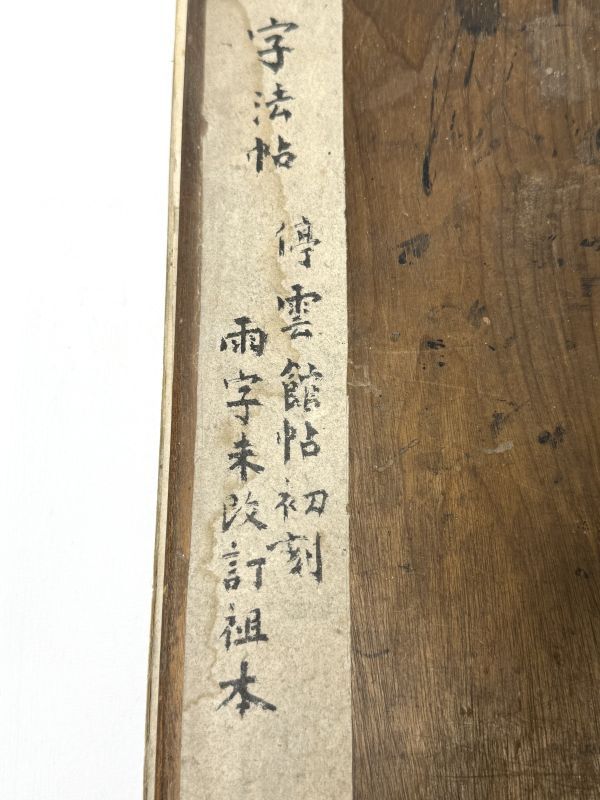 字法帖
停雲館帖初刻
雨字未改訂祖本